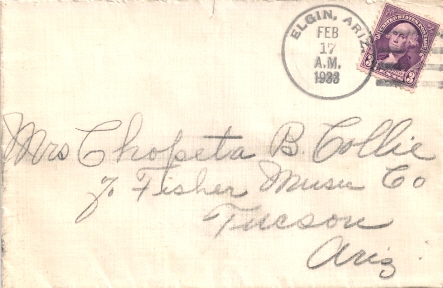 ELGIN, ARIZ.
FEB
17
A.M.
1933
3 3
Mrs Chopeta B. Collie
% Fisher Music Co
Tucson
Ariz.